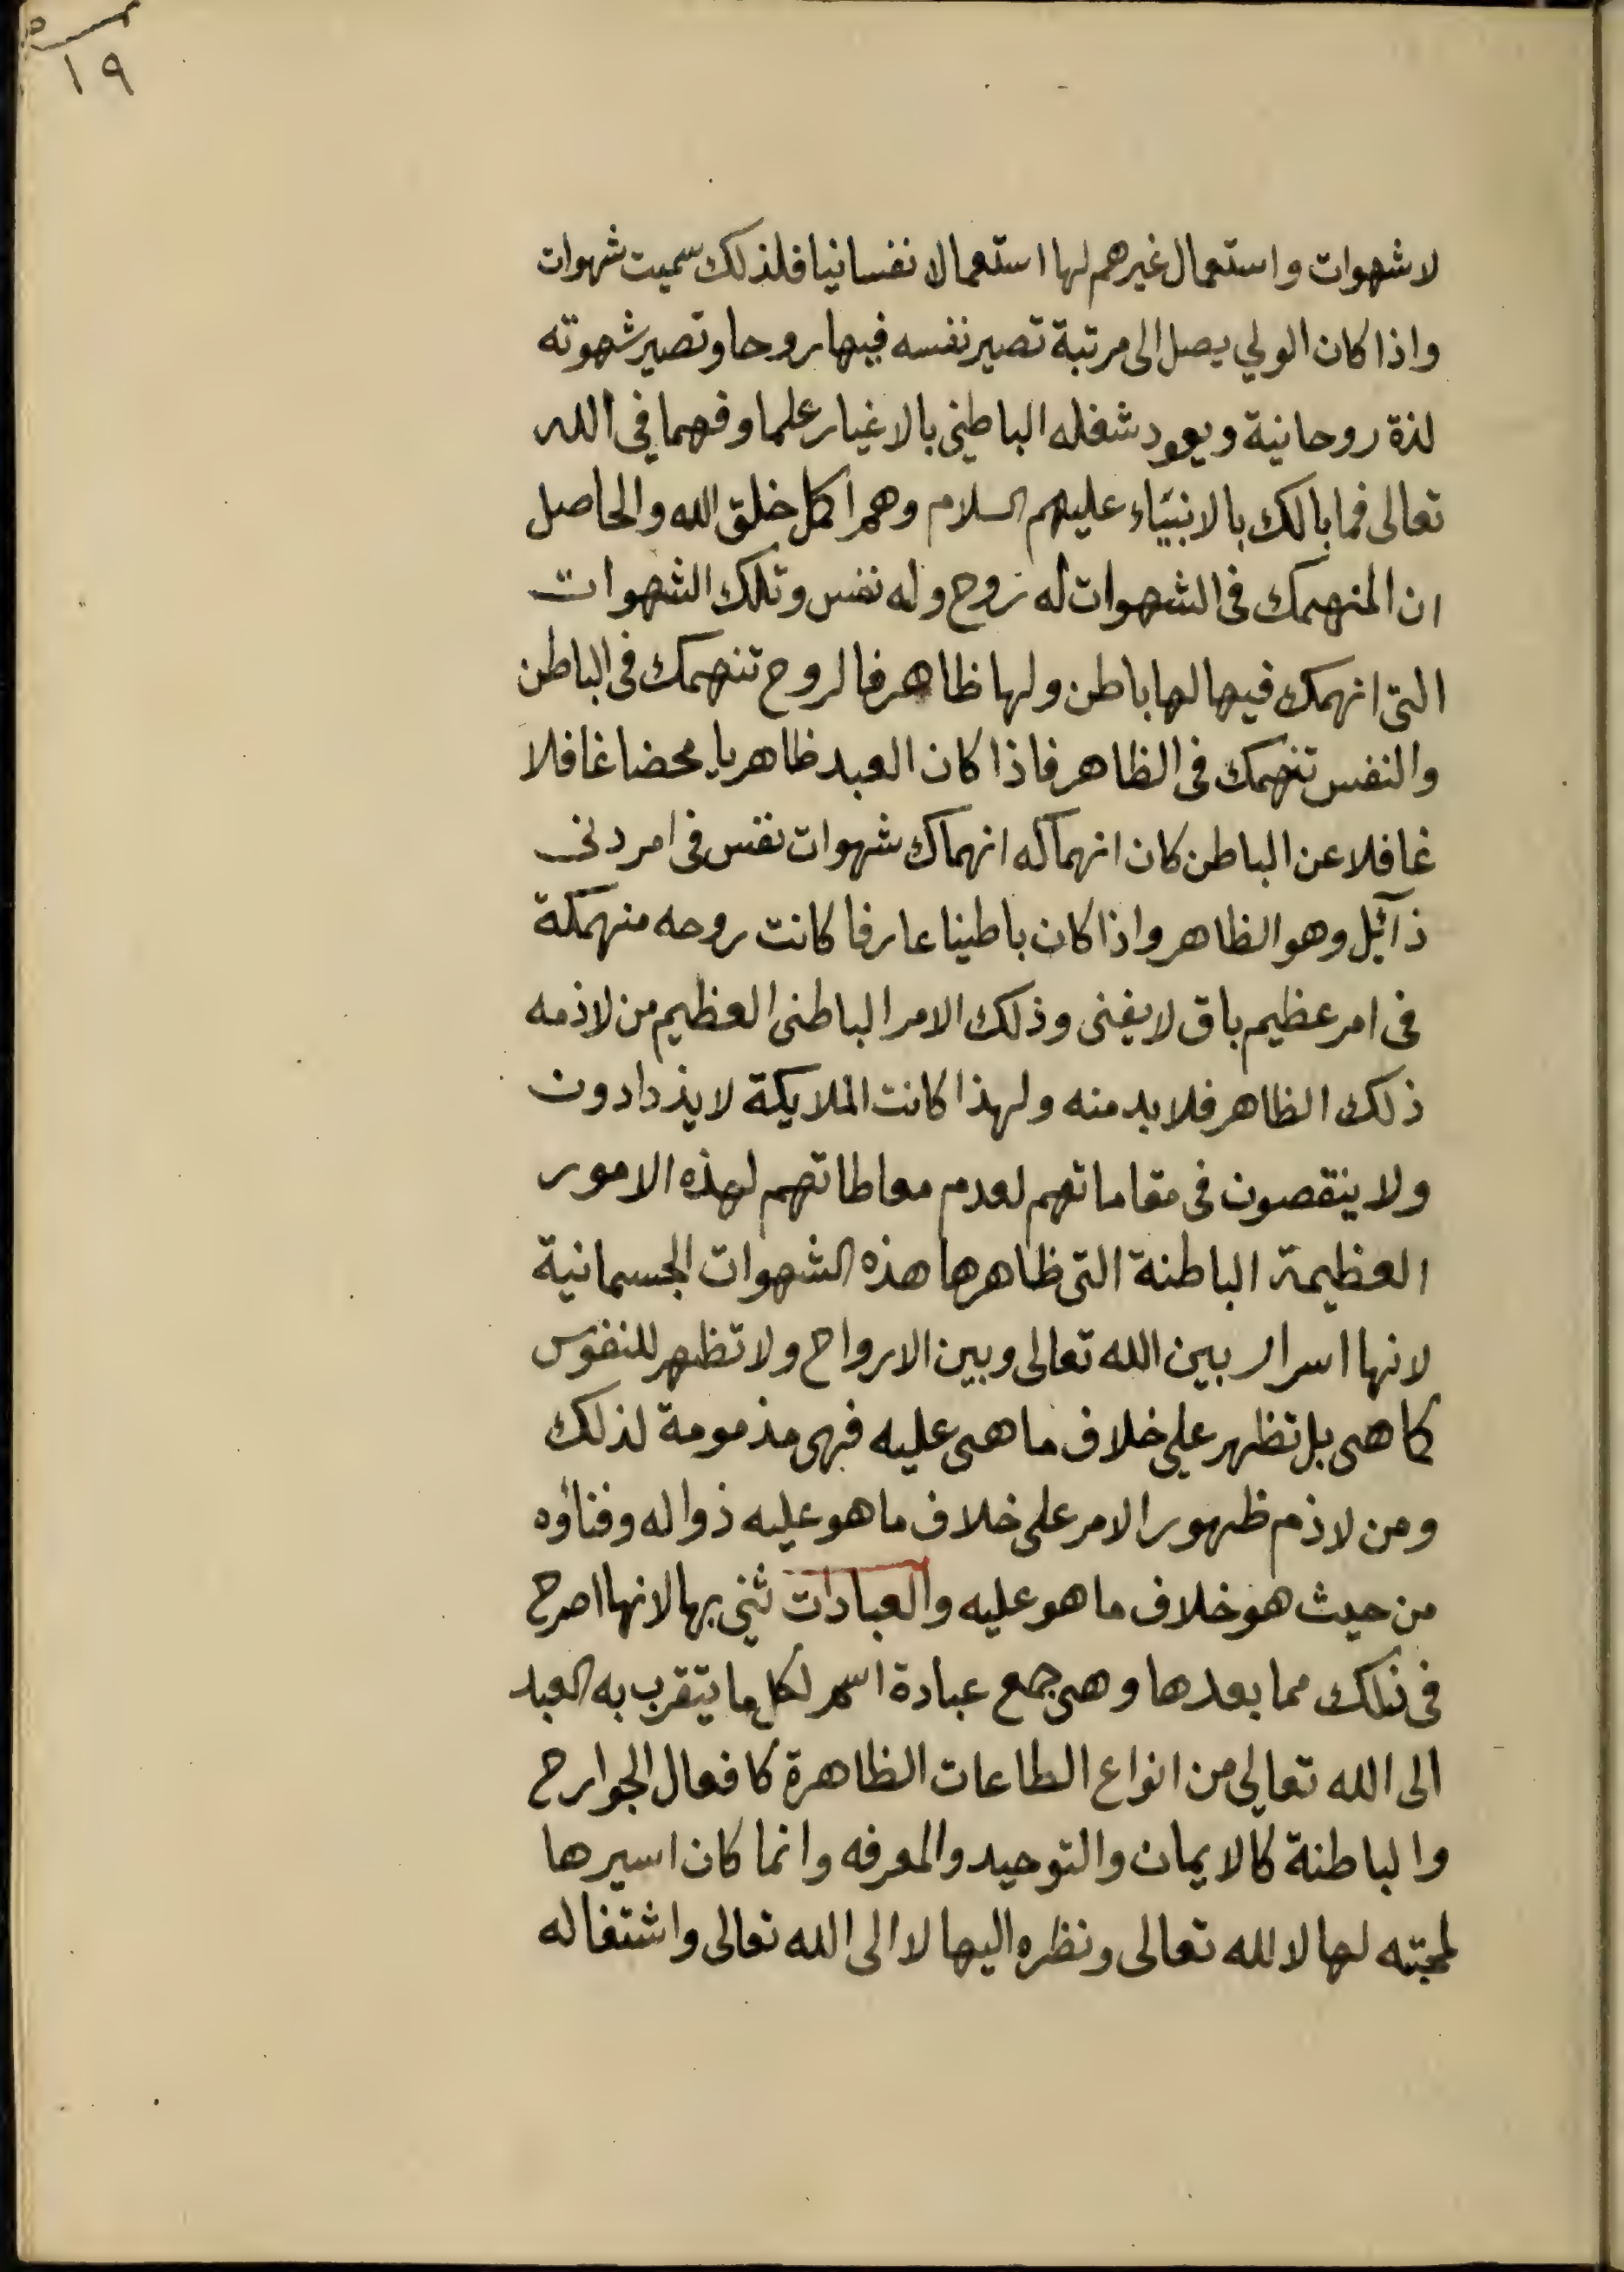 ١٩
لا شهوات واستعمال غيرهم لها استعمالا نفسانيا فلذلك سميت شهوات
واذا كان الولي يصل الى مرتبة تصير نفسه فيها روحا وتصير شهوته
لذة روحانية ويعود شغله الباطني بالاغيار علما وفهما في الله
تعالى فما بالك بالانبيآء عليهم السلام وهم اكمل خلق الله والحاصل
ان المنهمك فى الشهوات له روح وله نفس وتلك الشهوات
التى انهمك فيها لها باطن ولها ظاهر فالروح تنهمك فى الباطن
والنفس تنهمك فى الظاهر فاذا كان العبد ظاهريا محضا غافلا
غافلا عن الباطن كان انهماكه انهماك شهوات نفس فى امر دني
ذآئيل وهو الظاهر واذا كان باطينا عارفا كانت روحه منهمكة
فى امر عظيم باق لا يفنى وذلك الامر الباطنى العظيم من لاذمه
ذلك الظاهر فلا بد منه ولهذا كانت الملايكة لا يذدادون
ولا ينقصون فى مقاماتهم لعدم معاطاتهم لهذه الامور
العظيمة الباطنة التى ظاهرها هذه الشهوات الجسمانية
لانها اسرار بين الله تعالى وبين الارواح ولا تظهر للنفوس
كما هى بل تظهر على خلاف ما هى عليه فهى مذمومة لذلك
ومن لاذم ظهور الامر على خلاف ما هو عليه ذواله وفناؤه
من حيث هو خلاف ما هو عليه والعبادات ثني بها لانها اصرح
فى ذلك مما بعدها وهى جمع عبادة اسم لكل ما يتقرب به العبد
الى الله تعالى من انواع الطاعات الظاهرة كافعال الجوارح
والباطنة كالايمان والتوحيد والمعرفه وانما كان اسيرها
لمحبته لها لا لله تعالى ونظره اليها لا الى الله تعالى واشتغاله